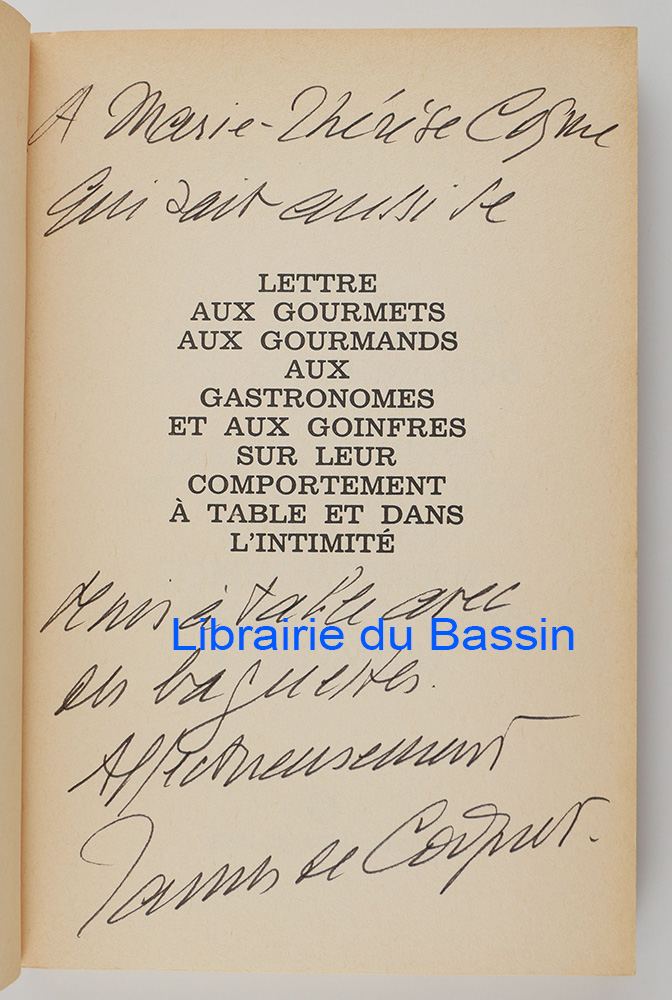 A Marie-Thérèse Cosme
qui sait aussi se
LETTRE
AUX GOURMETS
AUX GOURMANDS
AUX
GASTRONOMES
ET AUX GOINFRES
SUR LEUR
COMPORTEMENT
À TABLE ET DANS
L'INTIMITÉ
tenir à table avec
Librairie du Bassin
des baguettes.
Affectueusement
James de Coquet.